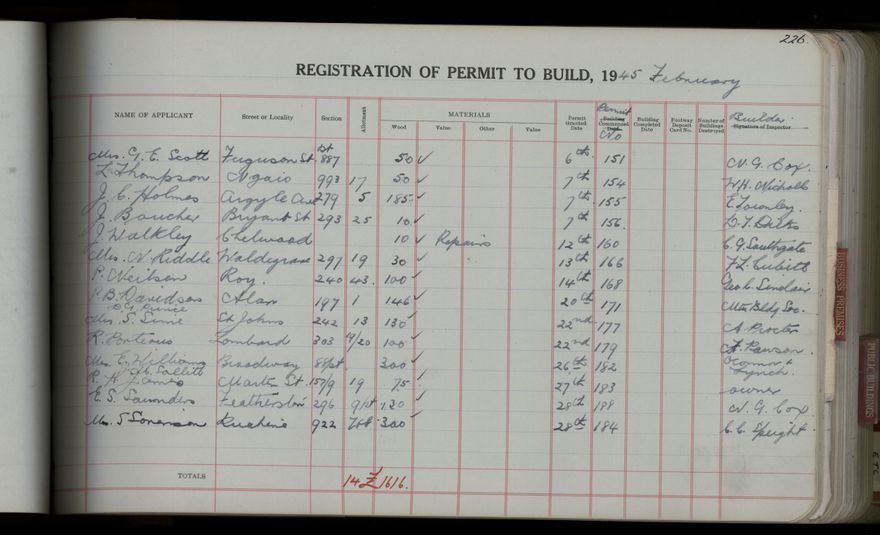 226.
REGISTRATION OF PERMIT TO BUILD, 1945 February
NAME OF APPLICANT Street or Locality Section Allotment MATERIALS Permit Granted Date Permit Building Commenced No Building Completed Date Footway Deposit Card No. Number of Buildings Destroyed Builder Signature of Inspector
Wood Value Other Value
Mrs. G. E. Scott Ferguson St 887 50 ✓ 6th 151 W. G. Cox.
L. Thompson Ngaio 993 17 50 ✓ 7th 154 W.H. Nicholls
J. C. Holmes Argyle Ave 279 5 185 ✓ 7th 155 E Townley.
J. Boucher Bryant St 293 25 10 ✓ 7th 156 D. T. Dicks
J. Walkley Chelwood 10 ✓ Repairs 12th 160 C. G. Southgate
Mrs. W. Riddle Waldegrave 297 19 30 ✓ 13th 166 F. L. Cubitt
P. Neilson Roy. 240 43. 100 ✓ 14th 168 Geo C. Sinclair
B. Davidson Alan 197 1 146 ✓ 20th 171 Bldg Soc.
Mrs. S. St Johns 242 13 130 ✓ 22nd 177 A Procter
R. Porteous Lombard 303 19/20 100 ✓ 22nd 179 Rawson.
Mrs. E. Williams Broadway 300 ✓ 26th 182 O'Connor & Lynch.
R. H. James Martin St 19 75 ✓ 27th 183 owner
E. S. Saunders Featherston 296 9pt 120 ✓ 28th 188 W. G. Cox
Mrs. S Sorenson Ruahine 922 300 ✓ 28th 184 C. C. Speight
TOTALS 14 £1616.
BUSINESS PREMISES
PUBLIC BUILDINGS